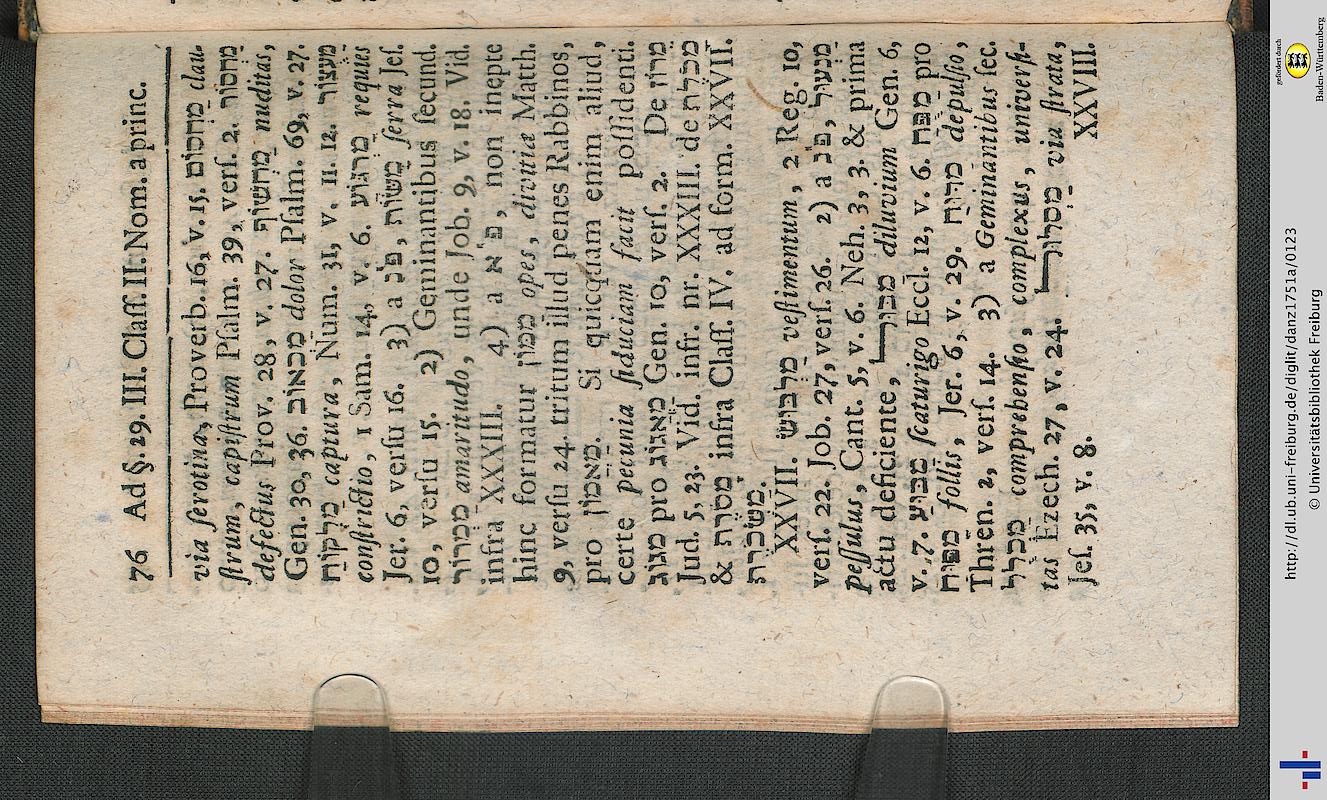 76 Ad §. 29. III. Claſſ. II. Nom. a princ.
via ſerotina, Proverb. 16, v. 15. מַחְסוֹם clau-
ſtrum, capiſtrum Pſalm. 39, verſ. 2. מַחְסוֹר
defectus Prov. 28, v. 27. מַחְשׂוֹף nuditas,
Gen. 30, 36. מַכְאוֹב dolor Pſalm. 69, v. 27.
מַלְקוֹחַ captura, Num. 31, v. 11. 12. מַעְצוֹר
conſtrictio, 1 Sam. 14, v. 6. מַרְגּוֹעַ requies
Jer. 6, verſu 16. 3) a פ״נ, מַשּׂוֹר ſerra Jeſ.
10, verſu 15. 2) Geminantibus ſecund.
מַמְרוֹר amaritudo, unde Job. 9, v. 18. Vid.
infra XXXIII. 4) a פ״א, non inepte
hinc formatur מָמוֹן opes, divitiæ Matth.
9, verſu 24. tritum illud penes Rabbinos,
pro מַאֲמוֹן. Si quicquam enim aliud,
certe pecunia fiduciam facit poſſidenti.
מָגוֹג pro מַאֲגוֹג Gen. 10, verſ. 2. De מֵרוֹז
Jud. 5, 23. Vid. infr. nr. XXXIII. de מַכֹּלֶת
& מָסֹרֶת infra Claſſ. IV. ad form. XXVII.
מַשְׂכֹּרֶת.
XXVII. מַלְבּוּשׁ veſtimentum, 2 Reg. 10,
verſ. 22. Job. 27, verſ. 26. 2) a פ״נ, מַנְעוּל
peſſulus, Cant. 5, v. 6. Neh. 3, 3. & prima
actu deficiente, מַבּוּל diluvium Gen. 6,
v. 7. מַבּוּעַ ſcaturigo Eccl. 12, v. 6. מַפֻּחַ pro
מַפּוּחַ follis, Jer. 6, v. 29. מַדּוּחַ depulſio,
Thren. 2, verſ. 14. 3) a Geminantibus ſec.
מַכְלוּל comprehenſio, complexus, univerſi-
tas Ezech. 27, v. 24. מַסְלוּל via ſtrata,
Jeſ. 35, v. 8. XXVIII.
http://dl.ub.uni-freiburg.de/diglit/danz1751a/0123
© Universitätsbibliothek Freiburg
gefördert durch
Baden-Württemberg